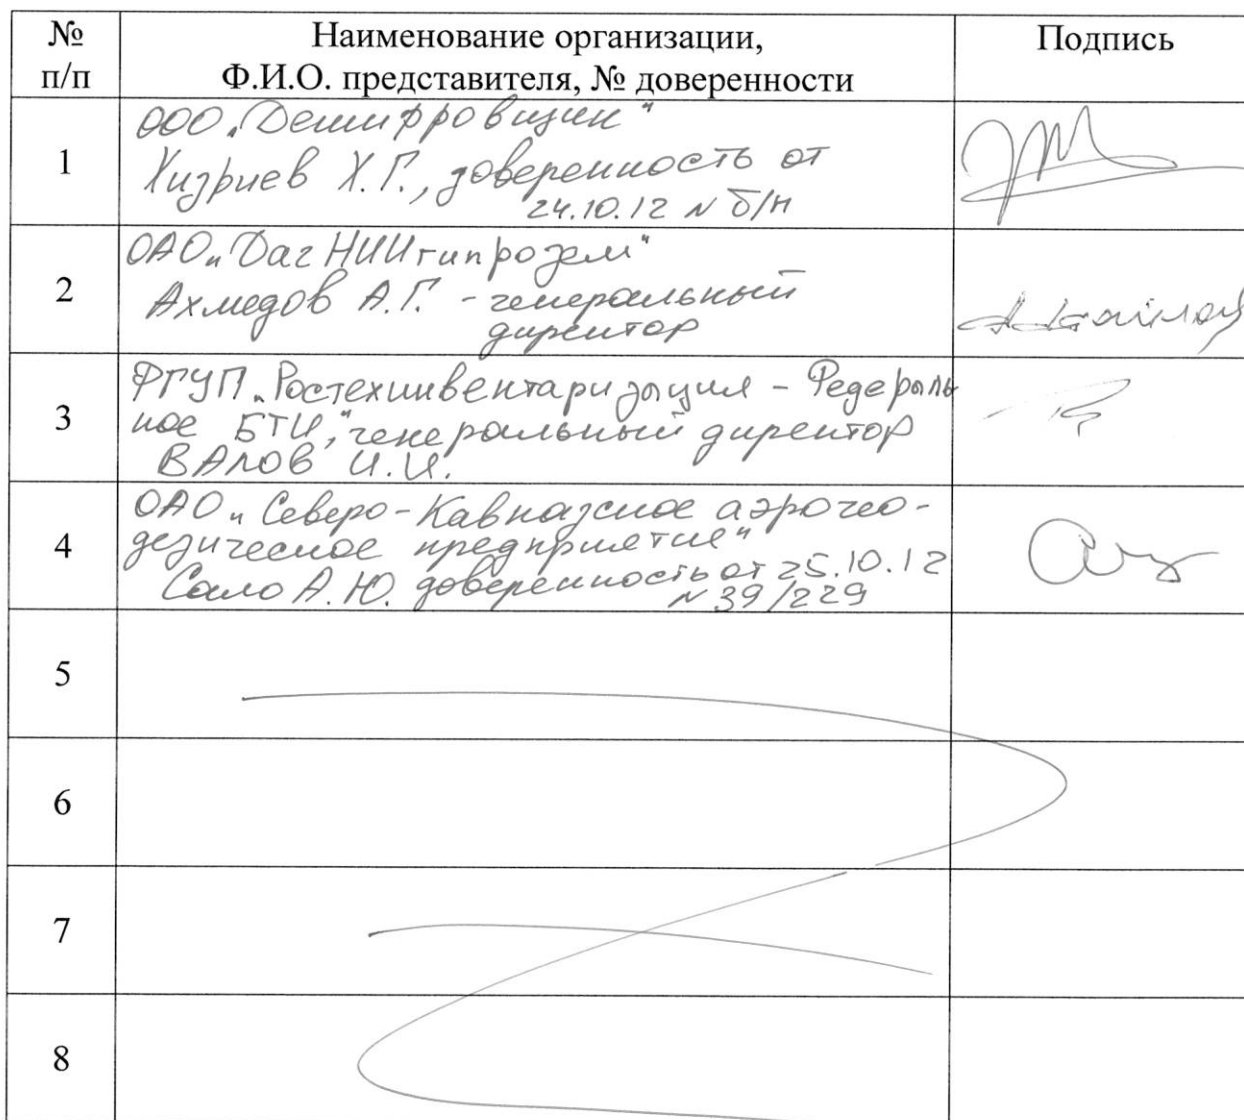 № Наименование организации, Подпись
п/п Ф.И.О. представителя, № доверенности
ООО „Дешифровщик"
1 Хизриев Х.Г., доверенность от
24.10.12 N б/н
ОАО „ДагНИИгипрозем"
2 Ахмедов А.Г. - генеральный
директор
ФГУП „Ростехинвентаризация - Федераль
3 ное БТИ", генеральный директор
ВАЛОВ И.И.
ОАО „Северо-Кавказское аэрогео-
4 дезическое предприятие"
Сало А.Ю. доверенность от 25.10.12
N 39/229
5
6
7
8